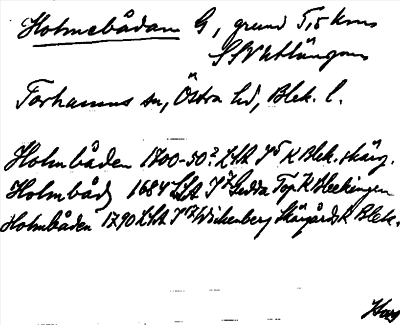 Holmebådan G, grund 7,5 km
SSV Utlängan
Torhamns sn, Östra hd, Blek. l.
Holmbåden 1700-50? LSA J5 K Blek. skärg.
Holmbåd 1684 LSA J7 Gedda Top K Bleckingen
Holmbåden 1790 LSA J17 Wickenberg Skärgårds k Blek.